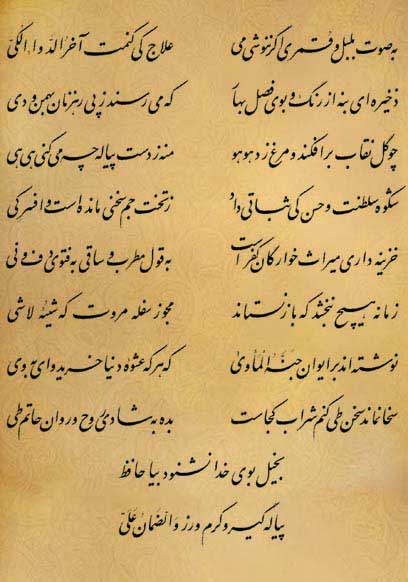 به صوت بلبل و قمری اگر ننوشی می علاج کی کنمت آخر الدواء الکی
ذخیره ای بنه از رنگ و بوی فصل بهار که می رسند ز پی رهزنان بهمن و دی
چو گل نقاب برافکند و مرغ زد هو هو منه ز دست پیاله چه می کنی هی هی
شکوه سلطنت و حسن کی ثباتی داد ز تخت جم سخنی مانده است و افسر کی
خزینه داری میراث خوارگان کفر است به قول مطرب و ساقی به فتوی دف و نی
زمانه هیچ نبخشد که باز نستاند مجو ز سفله مروت که شیئه لا شی
نوشته اند بر ایوان جنه الماوی که هر که عشوه دنیا خرید وای به وی
سخا نماند سخن طی کنم شراب کجاست بده به شادی روح و روان حاتم طی
بخیل بوی خدا نشنود بیا حافظ
پیاله گیر و کرم ورز و الضمان علی